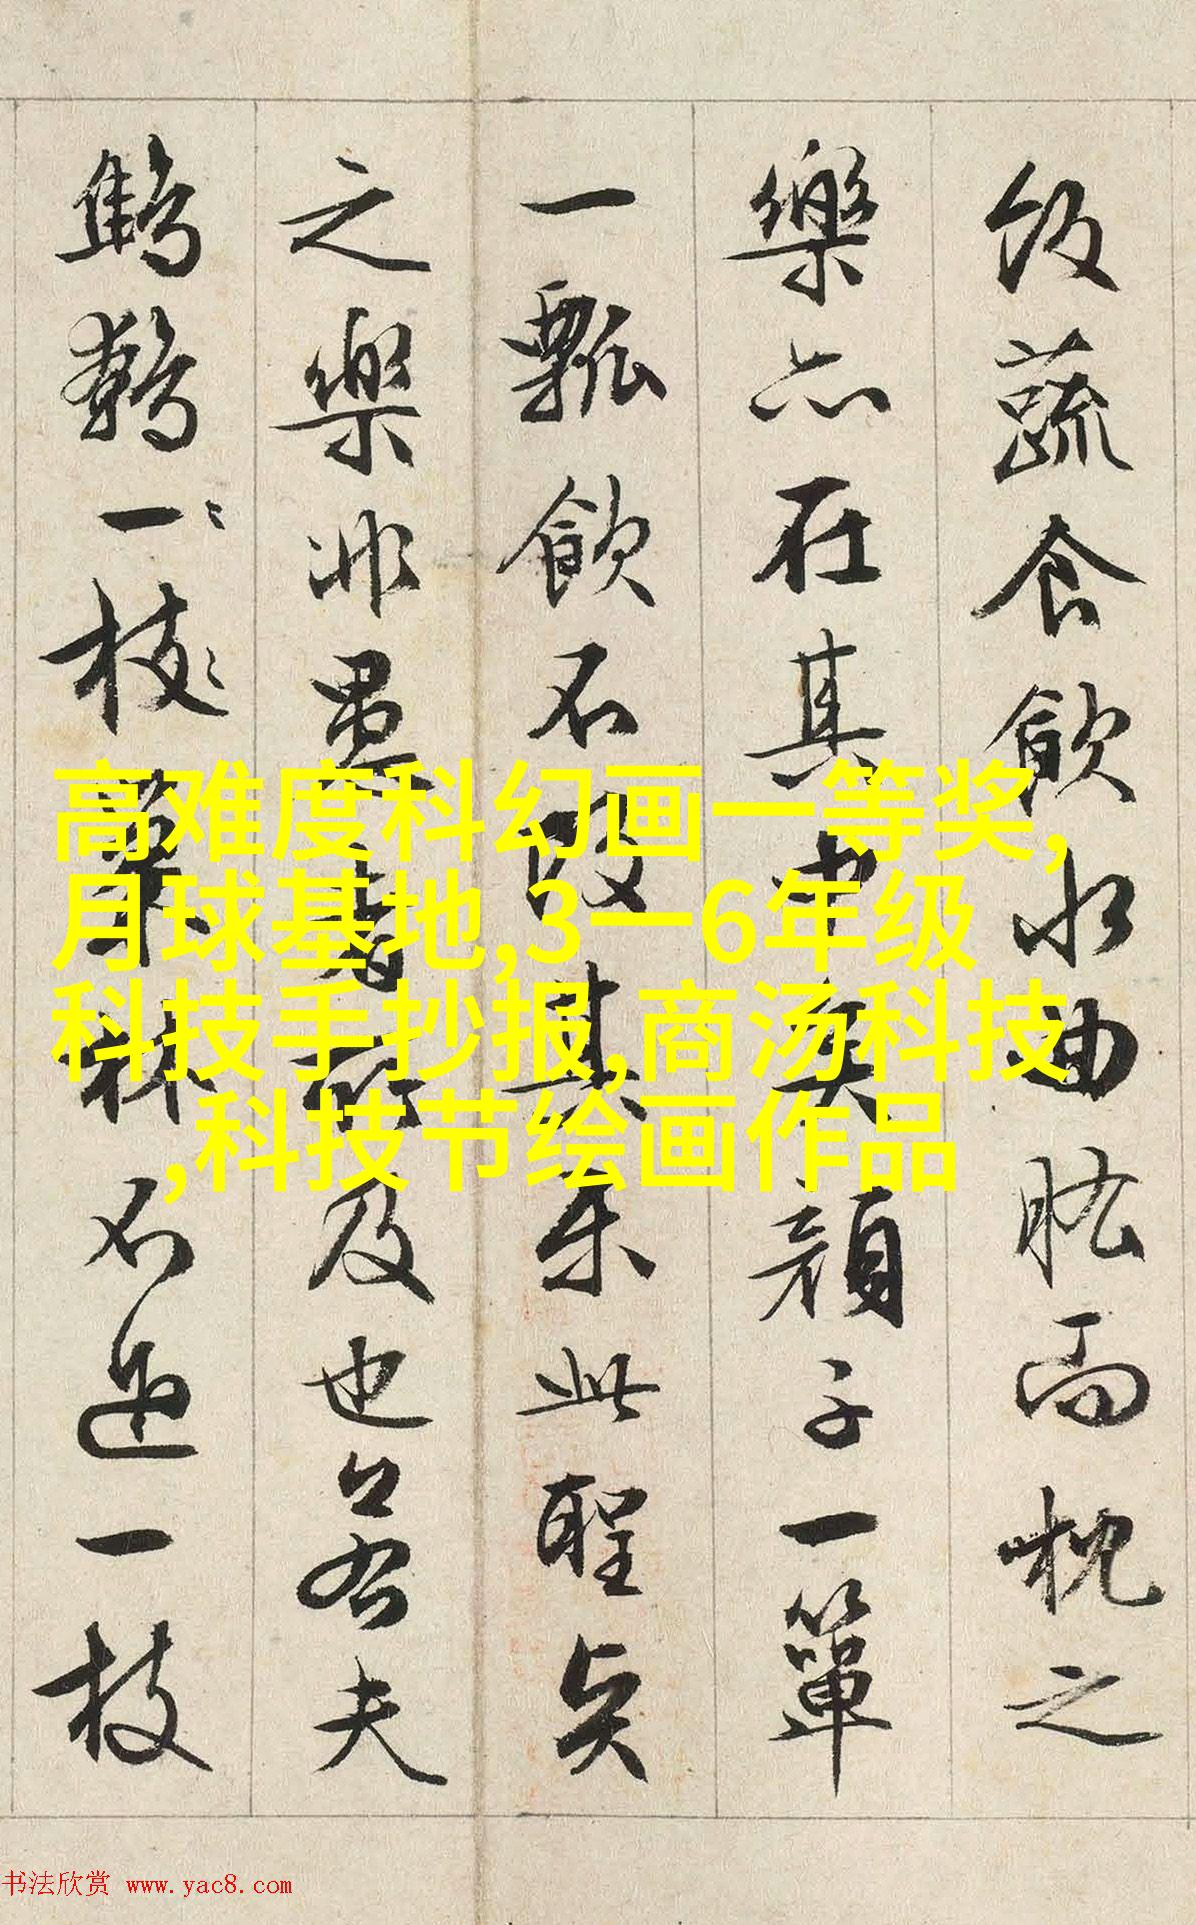 飯蔬食飲水曲肱而枕之
樂亦在其中矣顏子一簞
一瓢飲不改其樂此聖賢
之樂非愚者所及也若夫
鷦鷯一枝巢林不過一枝
高难度科幻画一等奖,
月球基地,3一6年级
科技手抄报,商汤科技
,科技节绘画作品
书法欣赏 www.yac8.com